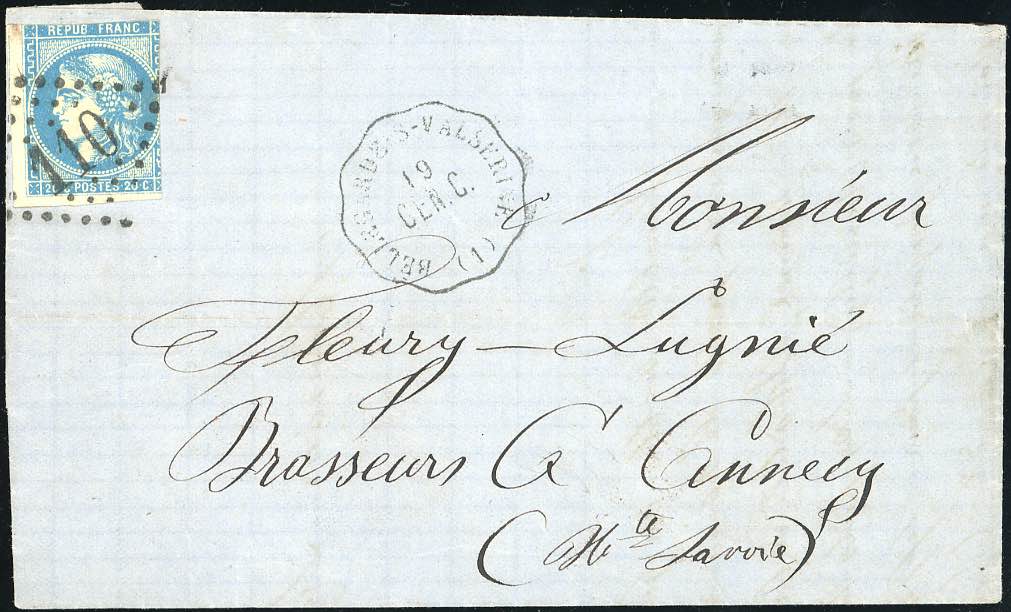 RÉPUB FRANC
20 C POSTES 20 C
BELLEGARDE-S-VALSERINE
19
GEN.C.
(1)
Monsieur
Fleury-Lugnié
Brasseurs à Annecy
(Hte Savoie)